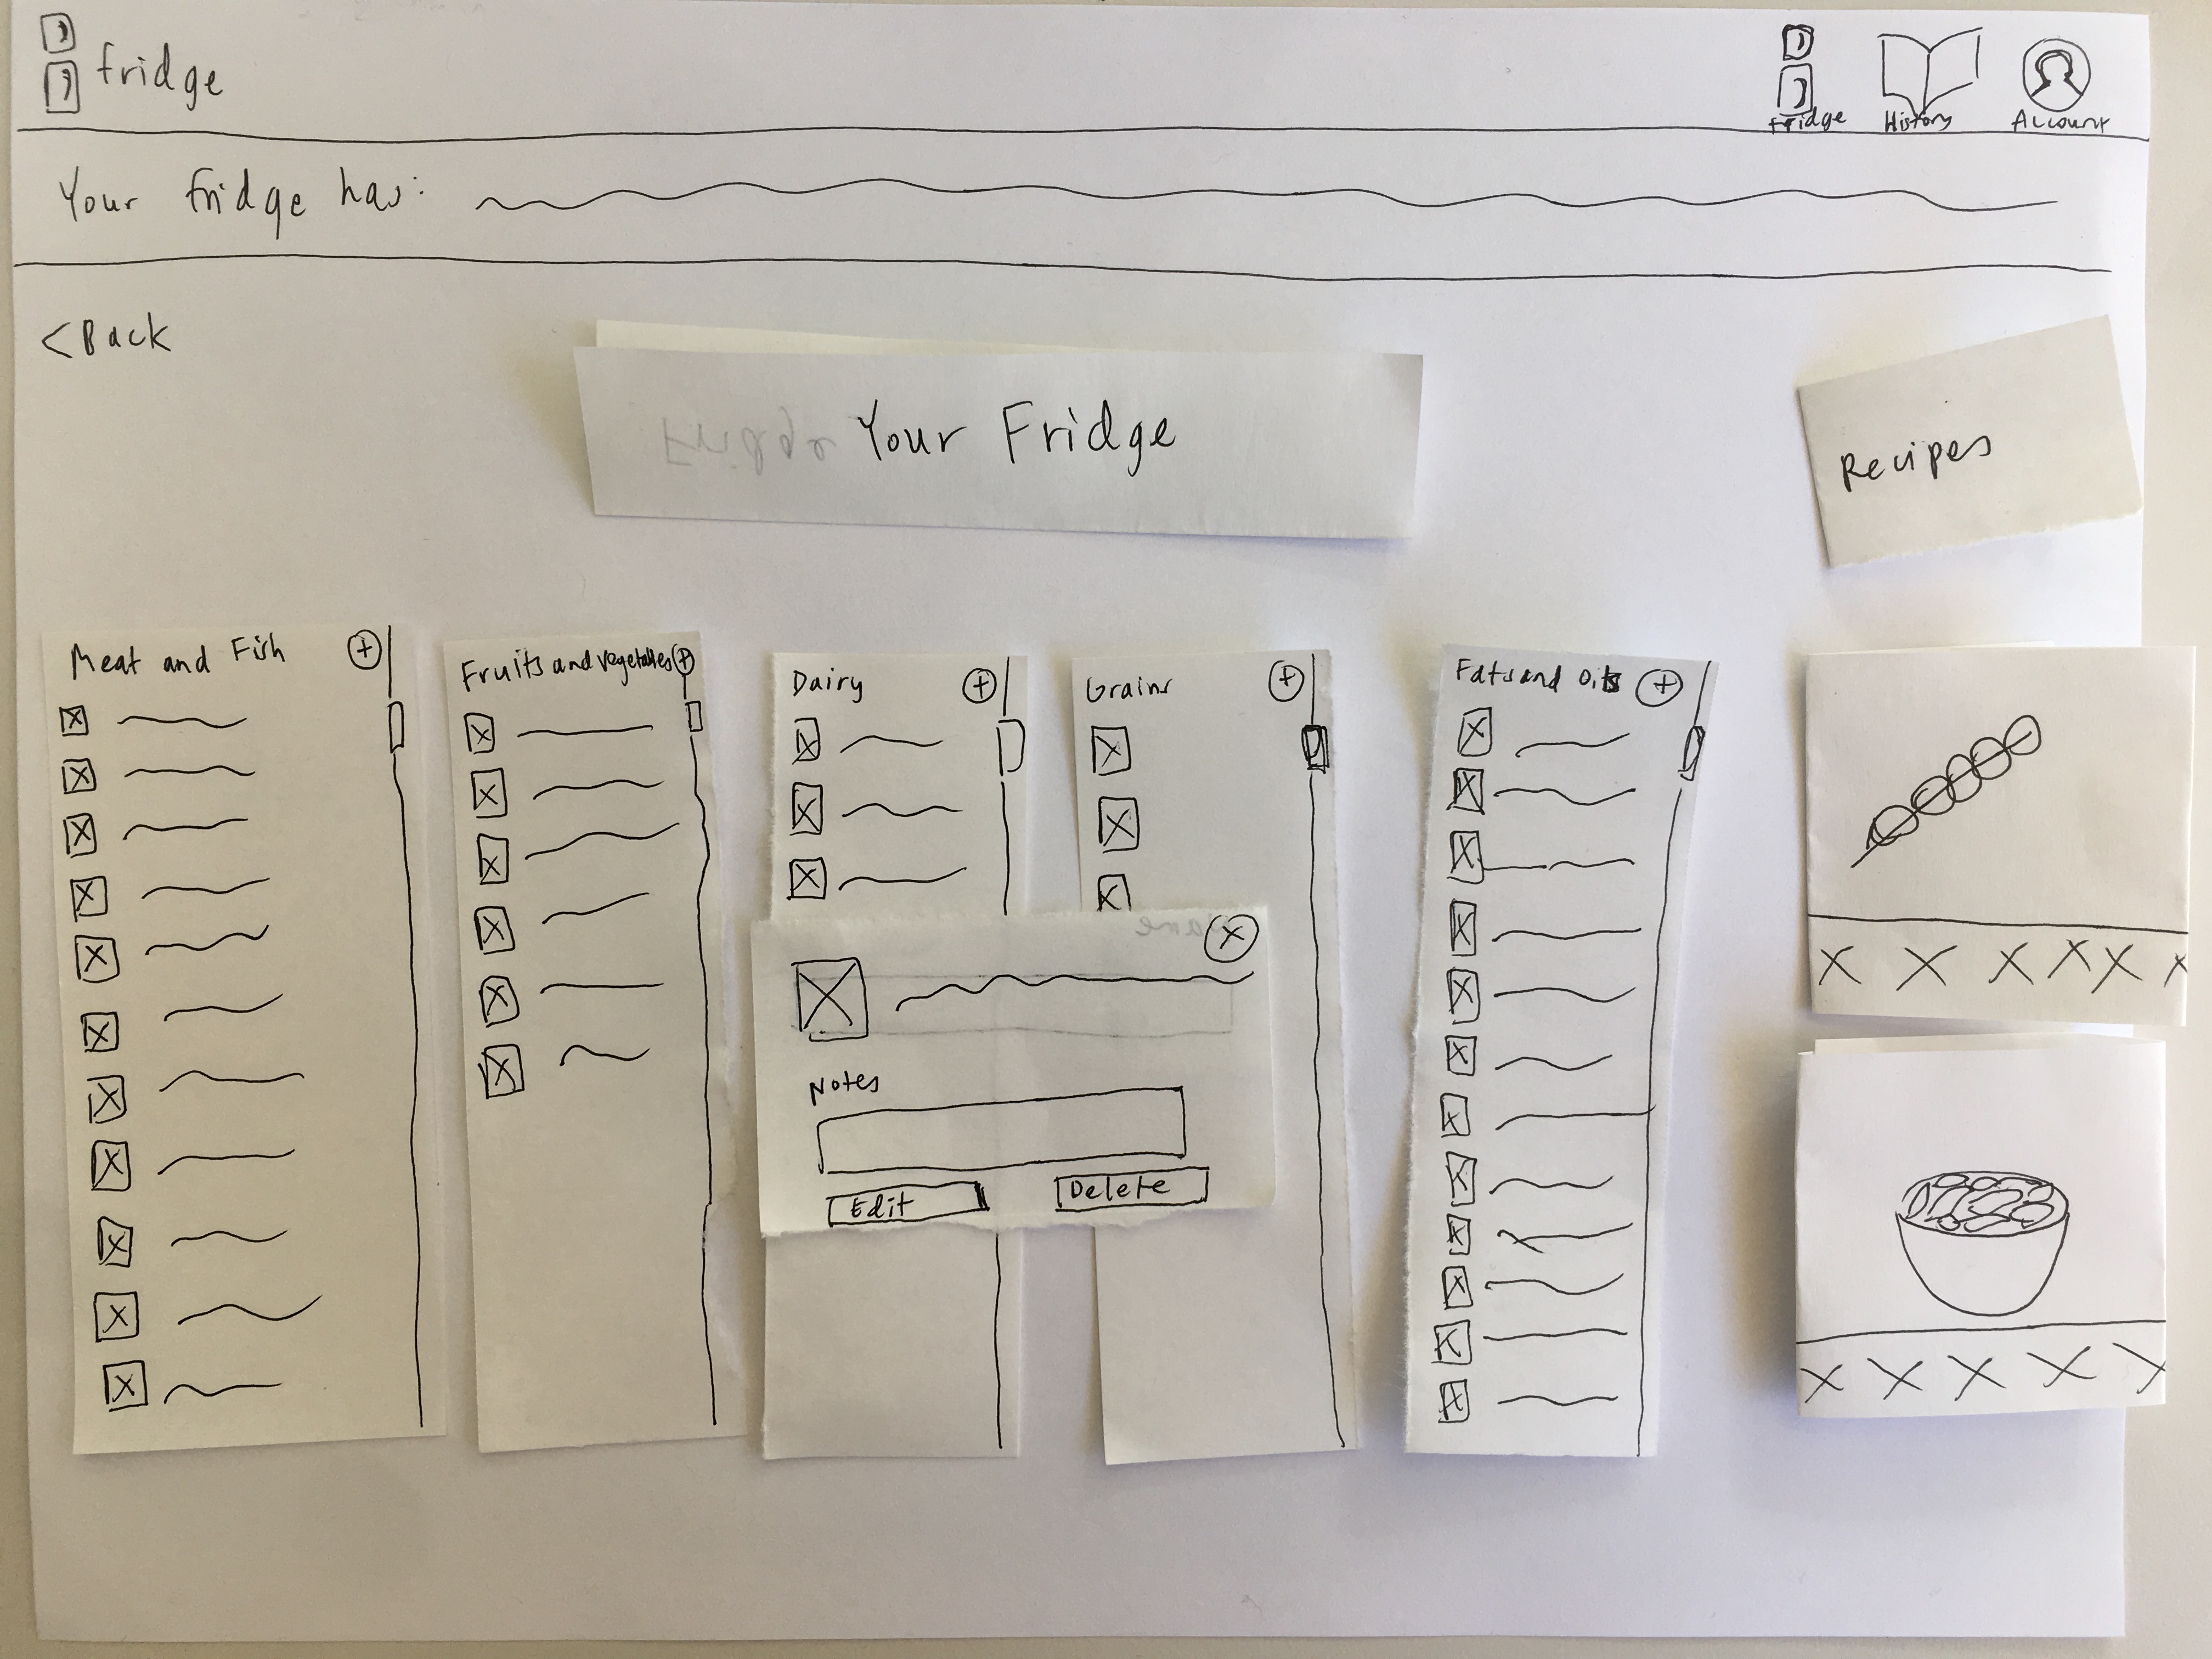 fridge
Fridge
History
Account
Your fridge has:
< Back
Your Fridge
Recipes
Meat and Fish
Fruits and vegetables
Dairy
Grains
Fats and Oils
Notes
Edit
Delete